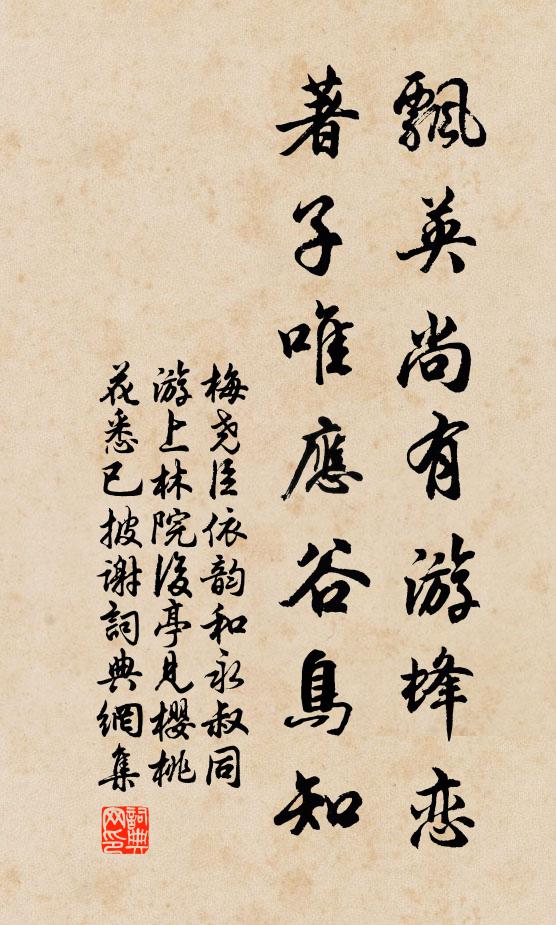 飄英尚有游蜂恋
著子唯應谷鳥知
梅尧臣依韵和永叔同
游上林院後亭見櫻桃
花悉已披謝詞典網集
詞典网印